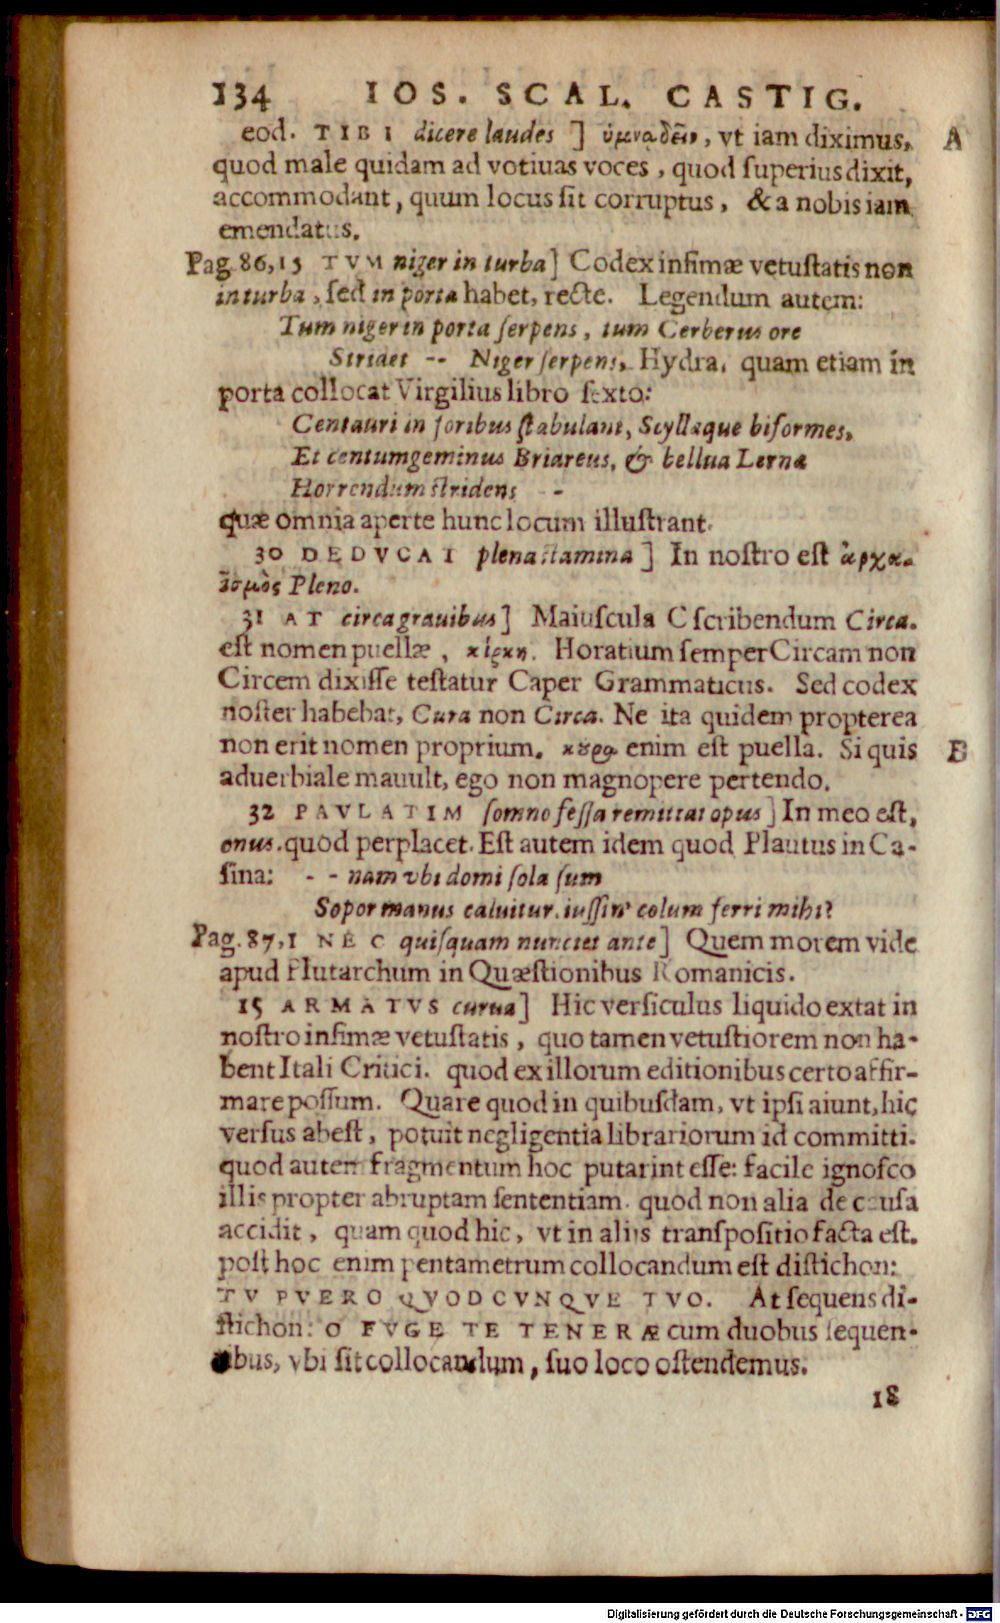 134 IOS. SCAL. CASTIG.
eod. TIBI dicere laudes ] ὑμναδεῖν, vt iam diximus, A
quod male quidam ad votiuas voces, quod ſuperius dixit,
accommodant, quum locus ſit corruptus, & a nobis iam
emendatus.
Pag. 86, 15 TVM niger in turba] Codex infimæ vetuſtatis non
in turba, ſed in porta habet, recte. Legendum autem:
Tum niger in porta ſerpens, tum Cerberus ore
Stridet -- Niger ſerpens, Hydra, quam etiam in
porta collocat Virgilius libro ſexto:
Centauri in foribus ſtabulant, Scyllæque biformes,
Et centumgeminus Briareus, & bellua Lernæ
Horrendum ſtridens -
quæ omnia aperte hunc locum illuſtrant.
30 DEDVCAT plena ſtamina ] In noſtro eſt ἀρχα-
ϊσμὸς Pleno.
31 AT circa grauibus] Maiuſcula C ſcribendum Circa.
eſt nomen puellæ, κίρκη. Horatium ſemper Circam non
Circem dixiſſe teſtatur Caper Grammaticus. Sed codex
noſter habebat, Cura non Circa. Ne ita quidem propterea
non erit nomen proprium. κούρα enim eſt puella. Si quis B
aduerbiale mauult, ego non magnopere pertendo.
32 PAVLATIM ſomno feſſa remittat opus] In meo eſt,
onus. quod perplacet. Eſt autem idem quod Plautus in Ca-
ſina: - - nam vbi domi ſola ſum
Sopor manus caluitur. iuſſin' colum ferri mihi?
Pag. 87, 1 NEC quiſquam nunciet ante] Quem morem vide
apud Plutarchum in Quæſtionibus Romanicis.
15 ARMATVS curua] Hic verſiculus liquido extat in
noſtro infimæ vetuſtatis, quo tamen vetuſtiorem non ha-
bent Itali Critici. quod ex illorum editionibus certo affir-
mare poſſum. Quare quod in quibuſdam, vt ipſi aiunt, hic
verſus abeſt, potuit negligentia librariorum id committi.
quod autem fragmentum hoc putarint eſſe: facile ignoſco
illis propter abruptam ſententiam. quod non alia de cauſa
accidit, quam quod hic, vt in aliis tranſpoſitio facta eſt.
poſt hoc enim pentametrum collocandum eſt diſtichon:
TV PVERO QVODCVNQVE TVO. At ſequens di-
ſtichon: O FVGE TE TENERÆ cum duobus ſequen-
tibus, vbi ſit collocandum, ſuo loco oſtendemus.
18
Digitalisierung gefördert durch die Deutsche Forschungsgemeinschaft - DFG